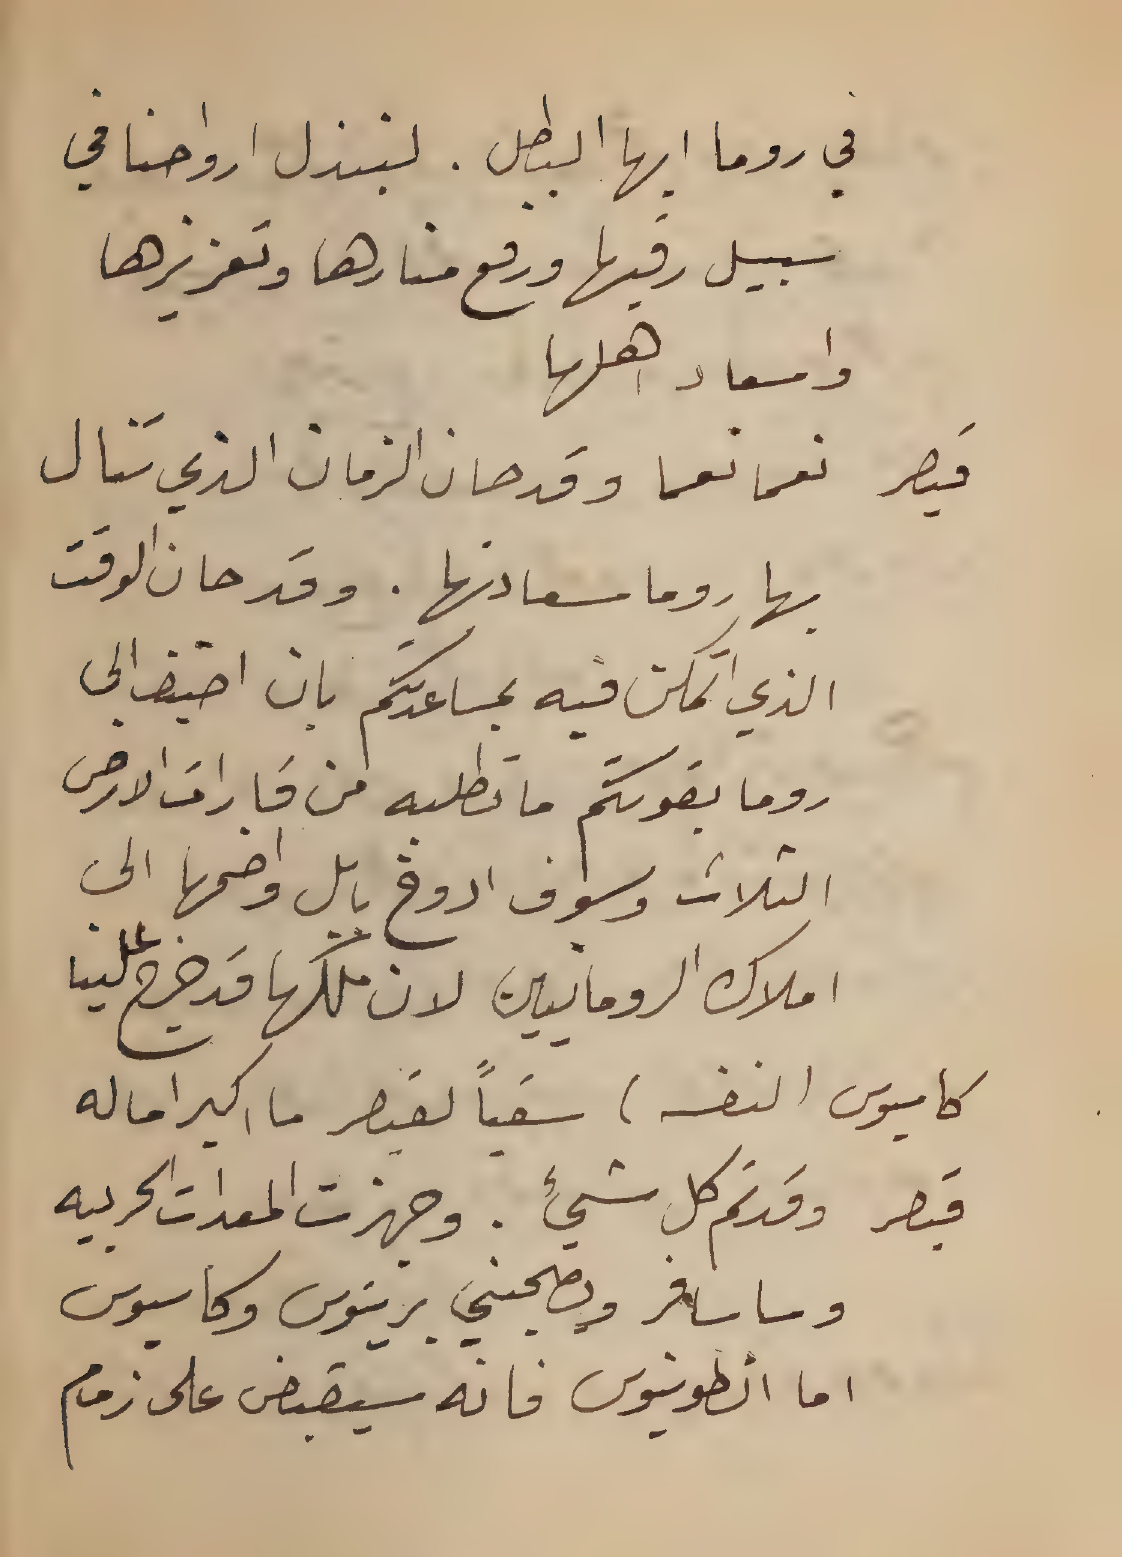 في روما ايها البطل . لنبذل ارواحنا في
سبيل رقيها ورفع منارها وتعزيزها
واسعاد اهلها
قيصر نعما نعما وقد حان الزمان الذي تنال
بها روما سعادتها . وقد حان الوقت
الذي اتمكن فيه بمساعدتكم بان اضيف الى
روما بقوتكم ما تطلبه من قارات الارض
الثلاث وسوف ادوخ بابل واضمها الى
املاك الرومانيين لان ملكها قد خرج علينا
كاسيوس (لنفسه) سقياً لقيصر ما اكبر اماله
قيصر وقد تم كل شيءٍ . وجهزت المعدات الحربيه
وساسافر ويصحبني برتيوس وكاسيوس
اما انطونيوس فانه سيقبض على زمام